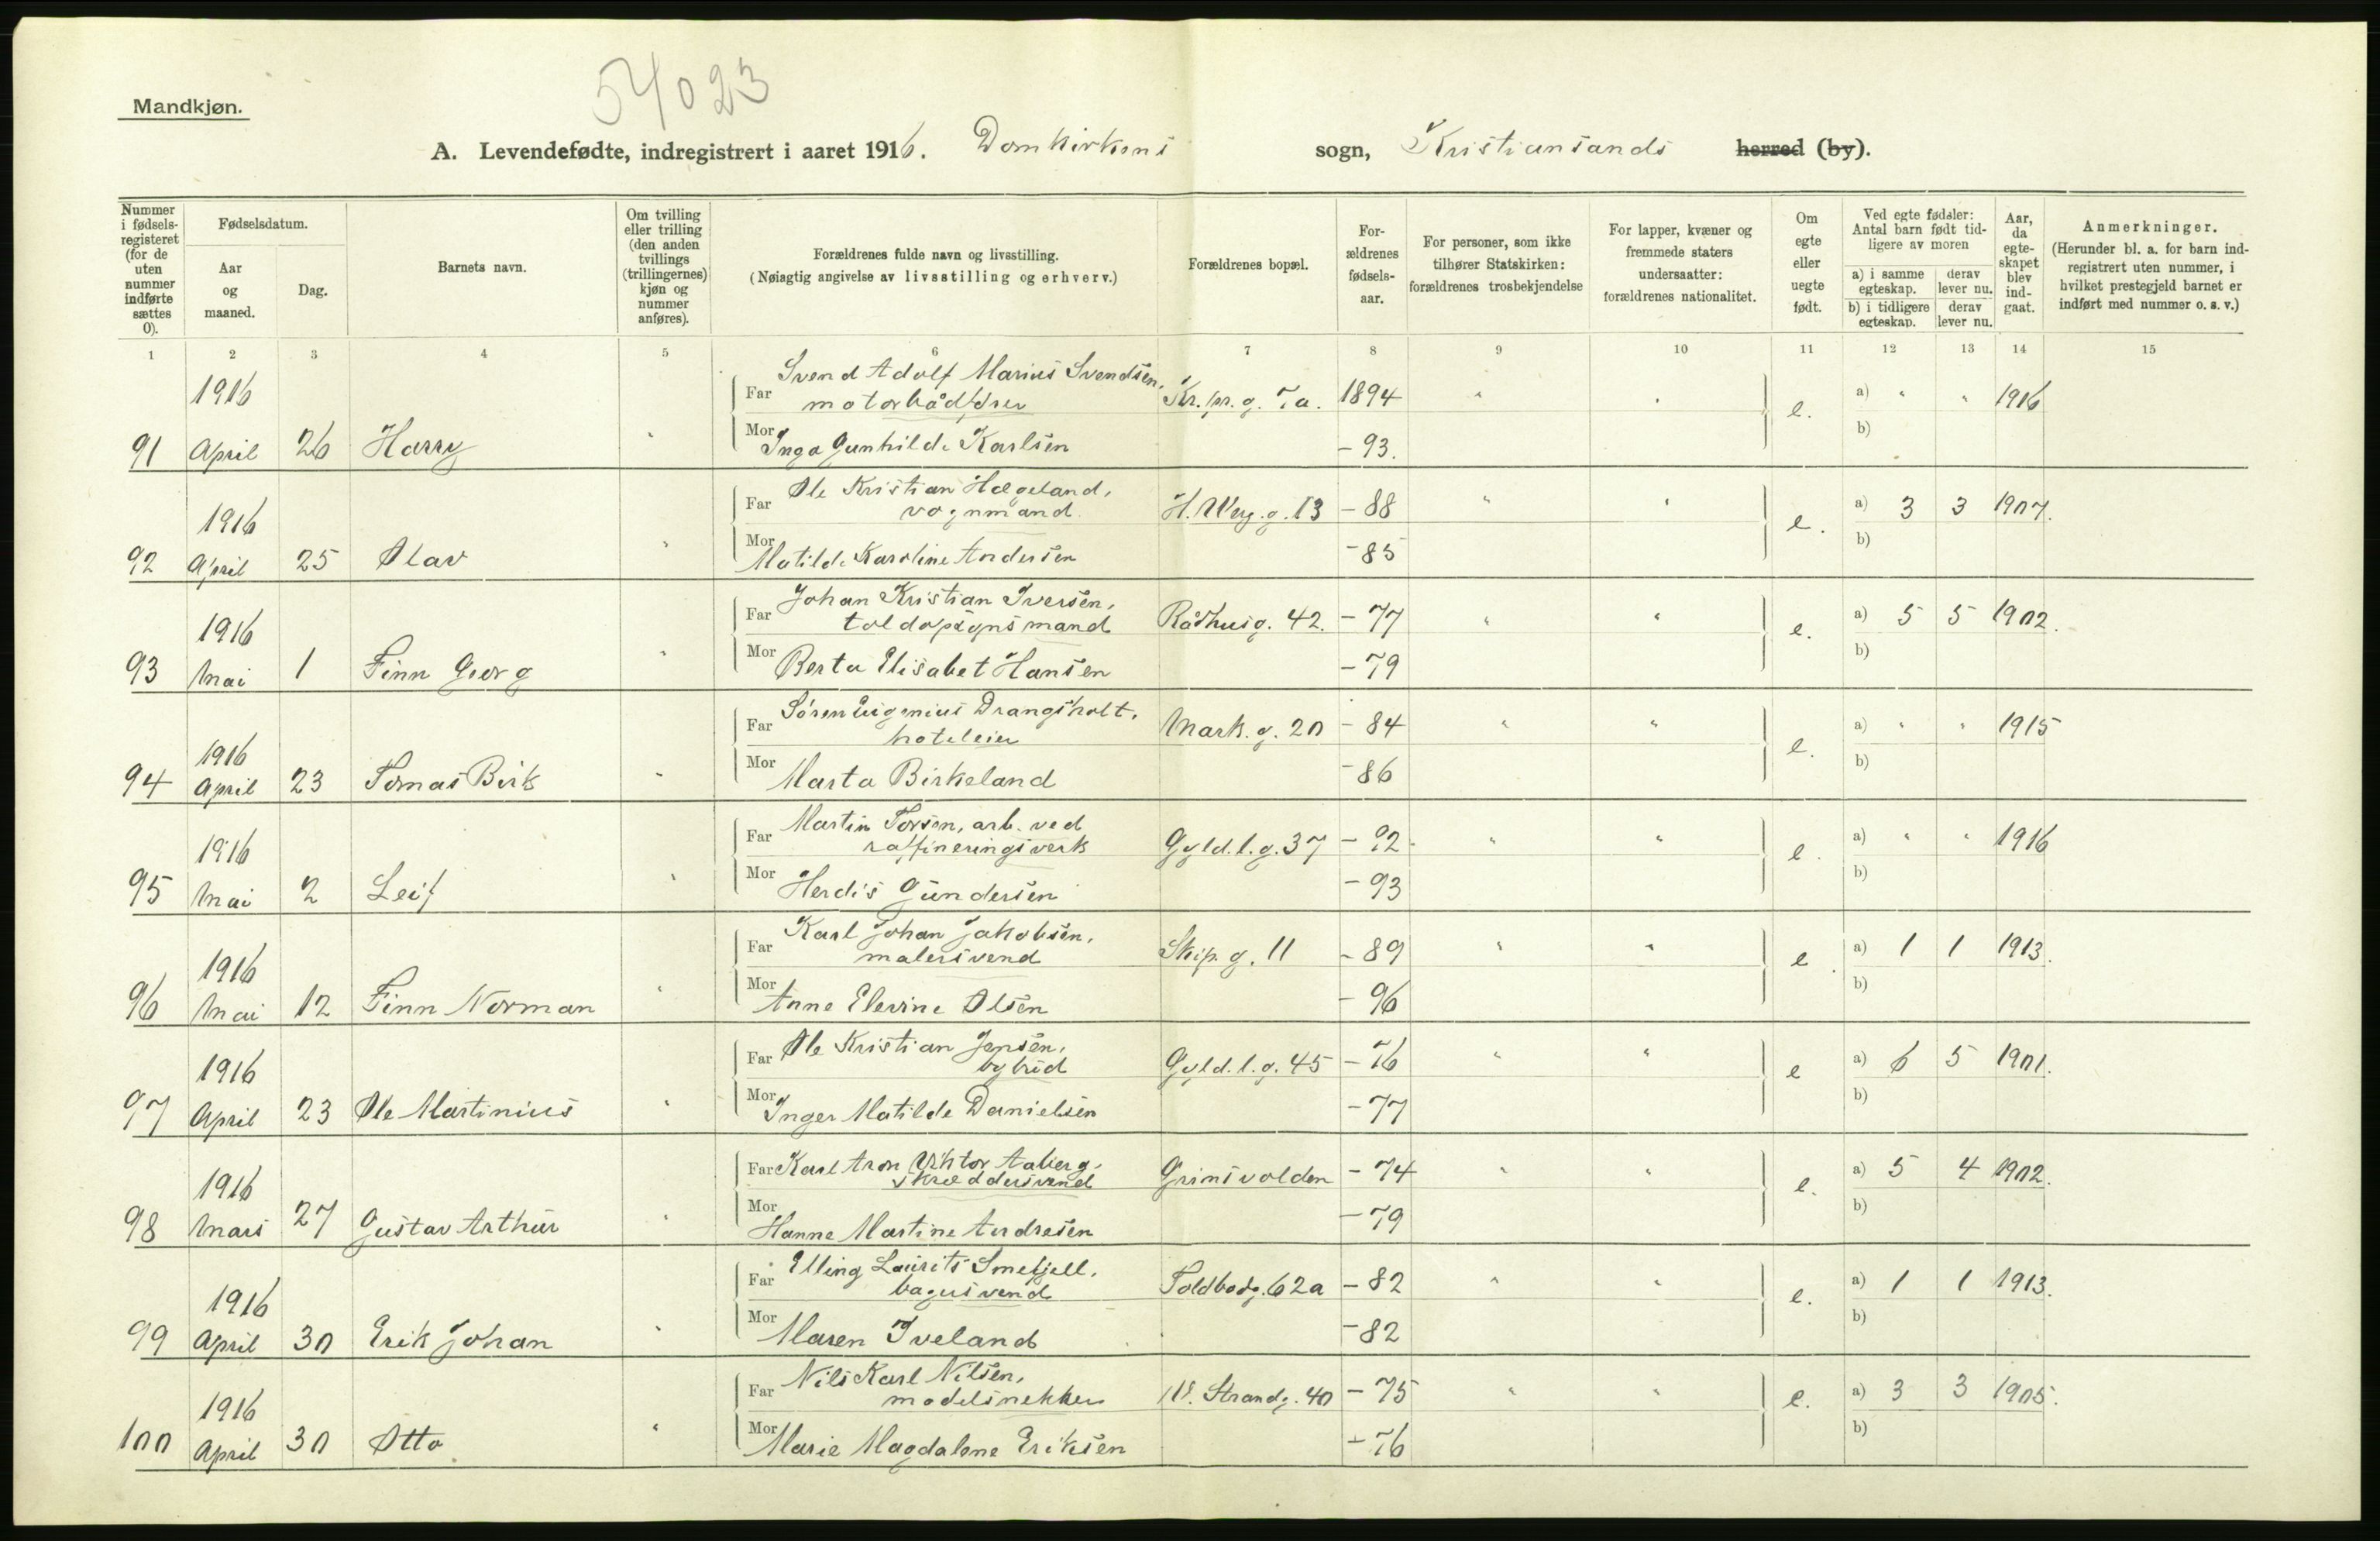 54023
Mandkjøn.
A. Levendefødte, indregistrert i aaret 1916. Domkirkens sogn, Kristiansands herred (by).
Nummer i fødselsregisteret (for de uten nummer indførte sættes 0).
Fødselsdatum.
Aar og maaned.
Dag.
Barnets navn.
Om tvilling eller trilling (den anden tvillings (trillingernes) kjøn og nummer anføres).
Forældrenes fulde navn og livsstilling.
(Nøiagtig angivelse av livsstilling og erhverv.)
Forældrenes bopæl.
For-ældrenes fødsels-aar.
For personer, som ikke tilhører Statskirken: forældrenes trosbekjendelse
For lapper, kvæner og fremmede staters undersaatter: forældrenes nationalitet.
Om egte eller uegte født.
Ved egte fødsler: Antal barn født tidligere av moren
a) i samme egteskap. derav lever nu.
b) i tidligere egteskap. derav lever nu.
Aar, da egte-skapet blev ind-gaat.
Anmerkninger.
(Herunder bl. a. for barn ind-registrert uten nummer, i hvilket prestegjeld barnet er indført med nummer o. s. v.)
1 2 3 4 5 6 7 8 9 10 11 12 13 14 15
Svend Adolf Marius Svendsen,
1916 Far motorbådfører Kr. pr. g. 7a. 1894 " " e. a) " " 1916
91 April 26 Harry " Mor Inga Gunhilde Karlsen - 93. b)
Far Ole Kristian Hægeland,
1916 vognmand H. Werg. g. 13 - 88 " " e. a) 3 3 1907.
92 April 25 Olav " Mor Matilde Karoline Andersen - 85 b)
Far Johan Kristian Iversen,
1916 toldopsynsmand Rådhusg. 42. - 77 " " e. a) 5 5 1902.
93 Mai 1 Finn Georg " Mor Berta Elisabet Hansen - 79 b)
Far Søren Eugenius Drangsholt,
1916 hoteleier Mark. g. 20 - 84 " " e. a) " " 1915
94 April 23 Tomas Birk " Mor Marta Birkeland - 86 b)
Far Martin Torsen, arb. ved
1916 raffineringsverk Gyld. l. g. 37 - 92 " " e. a) " " 1916
95 Mai 2 Leif " Mor Herdis Gundersen - 93 b)
Far Karl Johan Jakobsen,
1916 malersvend Skip. g. 11 - 89 " " e. a) 1 1 1913.
96 Mai 12 Finn Norman " Mor Anne Elevine Olsen - 96 b)
Far Ole Kristian Jepsen,
1916 bybud Gyld. l. g. 45 - 76 " " e a) 6 5 1901.
97 April 23 Ole Martinius " Mor Inger Matilde Danielsen - 77 b)
Far Karl Aron Viktor Aaberg,
1916 skræddersvend Grimsvolden - 74 " " e. a) 5 4 1902.
98 Mars 27 Gustav Arthur " Mor Hanne Martine Andresen - 79 b)
Far Elling Laurits Smefjell,
1916 bagersvend Toldbodg. 62a - 82 " " e. a) 1 1 1913.
99 April 30 Erik Johan " Mor Maren Iveland - 82 b)
Far Nils Karl Nilsen,
1916 modelsnekker V. Strandg. 40 - 75 " " e. a) 3 3 1905.
100 April 30 Otto " Mor Marie Magdalene Eriksen - 76 b)